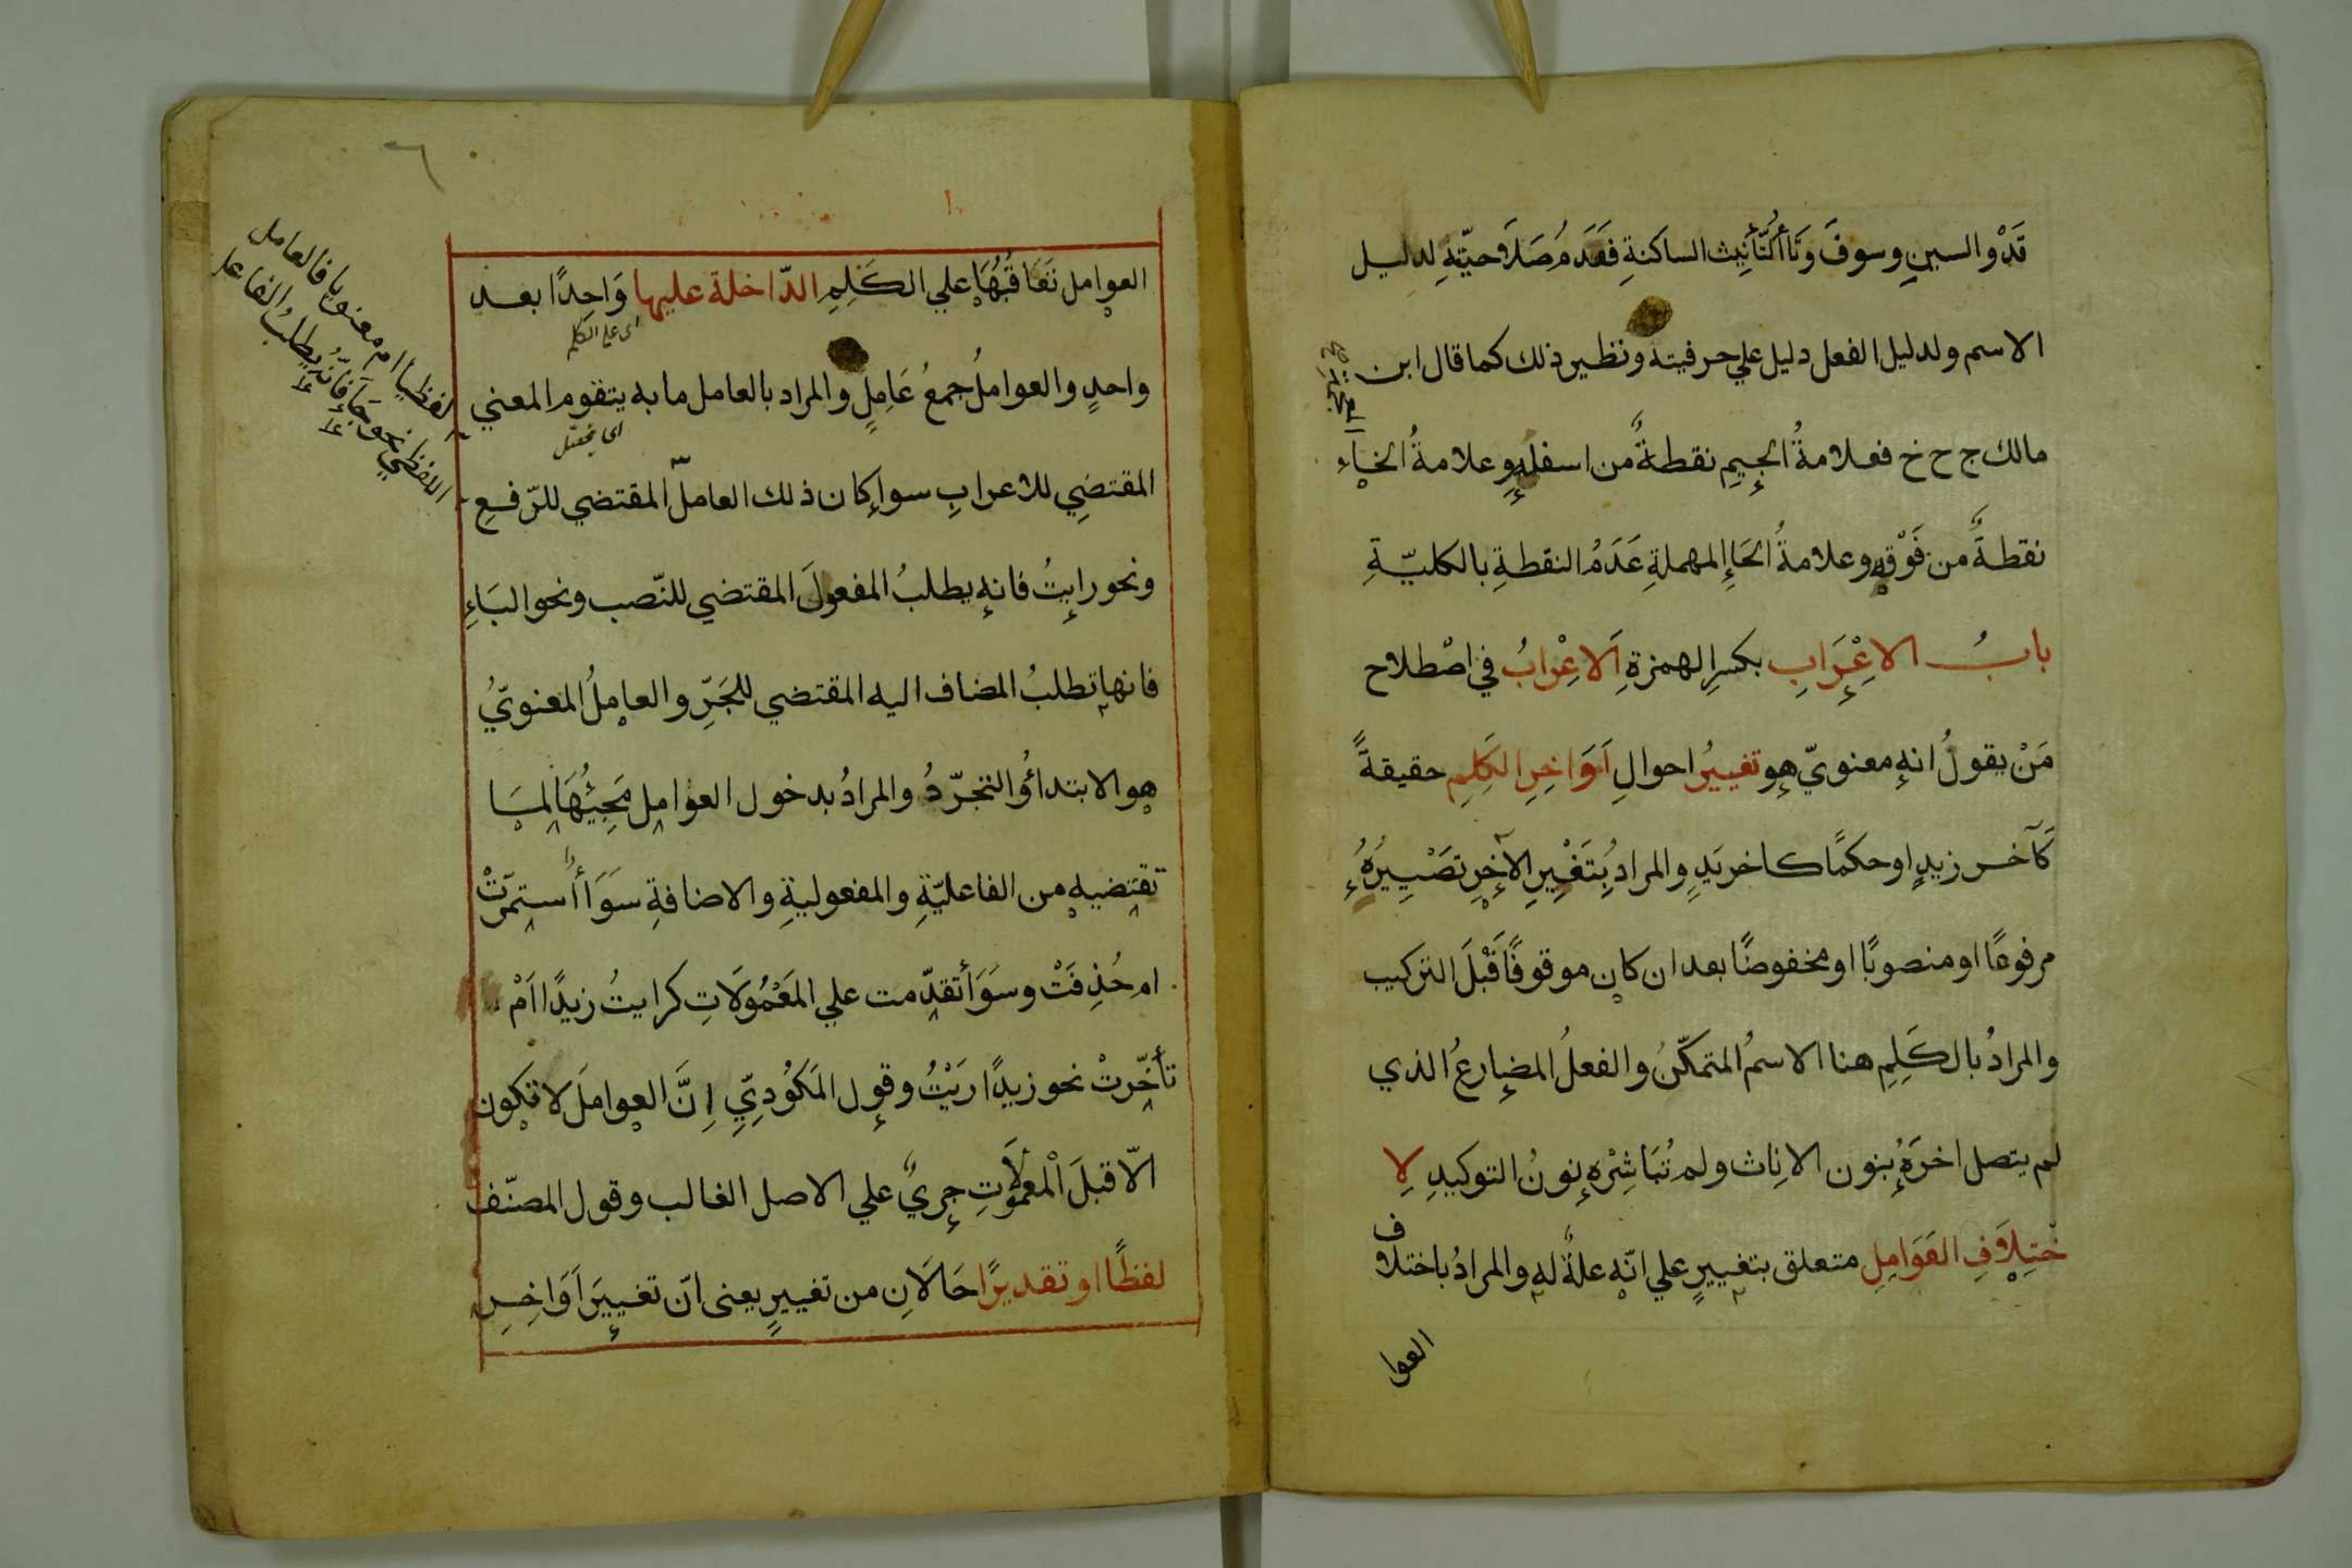 قَدْ والسينِ وسوفَ وَتَاأُلتَّأنِيث الساكنةِ فَعَدَمُ صَلَاحيّتهِ لدليل
الاسم ولدليل الفعل دليل علي حرفيته ونظير ذلك كما قال ابن
مالك ج ح خ فعلامةُ الجِيمِ نقطةٌ من اسفله وعلامةُ الخاء
نقطةٌ من فَوْقِه وعلامةُ الحَاءِ المهملةِ عَدَمُ النقطةِ بالكليّةِ
بابُ الاعْرَابِ بكسرِ الهمزةِ اَلاعْرابُ في اصْطلاح
مَنْ يقولُ انه معنويّ هو تغييرُ احوالِ اَوَاخِرِ الكَلِمِ حقيقةً
كَآخر زيدٍ او حكمًا كاخر يَدٍ والمرادُ بِتَغْيِيرِ الآخِرِ تَصْيِيرُهُ
مرفوعًا او منصوبًا او مخفوضًا بعد ان كان موقوفًا قَبْلَ التركيب
والمرادُ بالكَلِمِ هنا الاسمُ المتمكّنُ والفعلُ المضارعُ الذي
لم يتصل اخرَهُ بنون الانِاث ولم تُبَاشِرْه نونُ التوكيدِ لِا
خْتِلَافِ العَوَامِلِ متعلق بتغييرٍ علي انّه علةٌ له والمرادُ باختلاف
العوا
العوامل تَعَاقُبُهَا علي الكَلِمِ الدّاخلة عليها وَاحِدًا بعد
اي علي الكلم
واحدٍ والعواملُ جمعُ عَامِلٍ والمراد بالعامل ما به يتقوم المعني
اي يحصل
المقتضِي للاعرابِ سوا كان ذلك العامل المقتضي للرّفعِ
ونحو رايتُ فانه يطلبُ المفعولَ المقتضي للنّصب ونحو البَاءِ
فانها تطلبُ المضاف اليه المقتضي للجَرِّ والعامِلُ المعنويُّ
هو الابتداؤُ والتجرّدُ والمرادُ بدخول العوامِل مَجِيئُهَا لِمَا
تقتضيه من الفاعليّةِ والمفعوليةِ والاضافةِ سَوَاأُ استمَرّتْ
ام حُذِفَتْ وسَوَأ تقدّمت علي المَعْمُولَاتِ كرايتُ زيدًا اَمْ
تأخّرتْ نحو زيدًا رَيْتُ وقول المَكُودِيّ اِنَّ العواملَ لا تكون
الّا قبلَ اْلمعمولَاتِ جريٌ علي الاصل الغالب وقول المصنّف
لفظًا او تقديرًا حَالَانِ من تغييرٍ يعنى انّ تغييرَ اَوَاخِرِ
لفظيا ام معنويا فالعامل
اللفظي نحو جَاَ فإنّهُ يطلبُ الفاعل